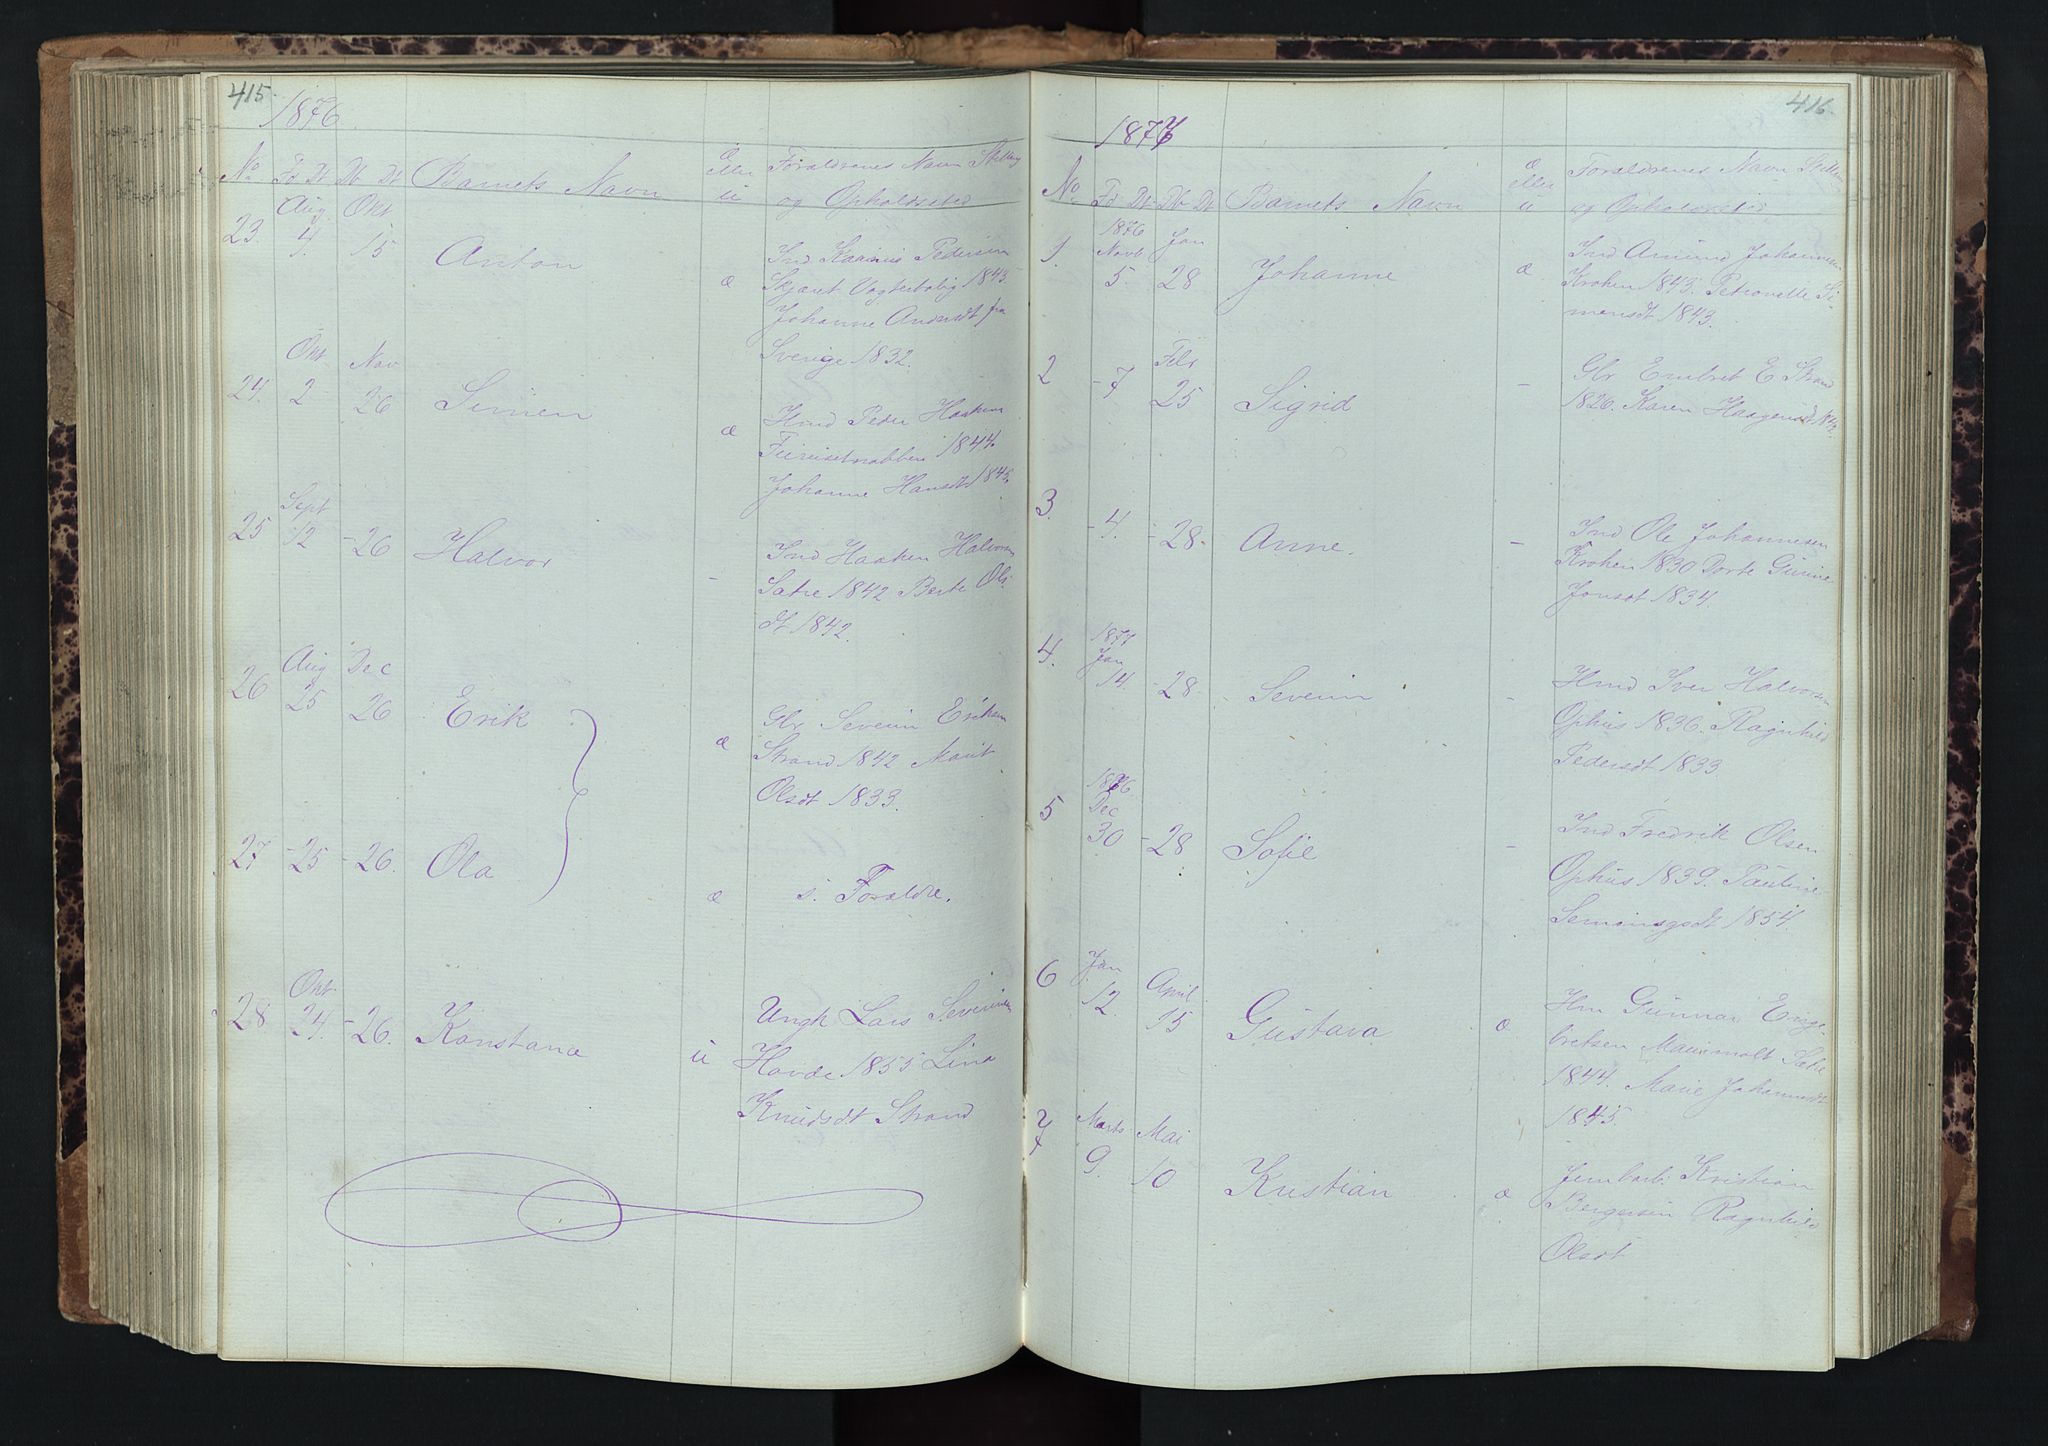 415
1876
No Fd Dt Db Dt Barnets Navn Æ eller U Forældrenes Navn Stilling
og Opholdssted
23. Aug 4. Okt 15 Anton æ Ind Karinus Pedersen
Skjæret Vogterbolig 1843
Johanne Andersdt fra
Sverige 1832.
24. Okt 2 Nov 26 Simen æ Hmd Peder Haaken
1844
Johanne Hansdt 1845.
25 Sept 12 - 26 Halvor - Ind Haaken Halvorsen
Satre 1842 Berte Ols
dt 1842.
26 Aug 25 Dec 26 Erik æ Gbr Severin Eriksen
Strand 1842 Marit
Olsdt 1833.
27 - 25 - 26. Ola æ s. Forældre.
28 Okt 24. - 26. Konstana ü Ungk Lars Severinsen
Havde 1855 Lina
Knudsdt Strand
416.
1877
No Fd Dt Db Dt Barnets Navn Æ eller U Forældrenes Navn Stilling
og Opholdssted
1. 1876 Novb 5. Jan 28 Johanne æ Ind Amund Johannesen
Krohen 1843. Petronelle Si
mensdt 1843.
2 - 7 Febr 25 Sigrid - Gbr Embret E Strand
1826. Karen Haagensdt
3. - 4. - 28. Anne. - Ind Ole Johannesen
Krohen 1830 Dorte Gunne
Jonsdt 1834.
4. 1877 Jan 14. - 28 Severin - Hmd Iver Halvorsen
Ophus 1836. Ragnhild
Pedersdt 1833
5 1876 Dec 30 - 28 Sofie - Ind Fredrik Olsen
Ophus 1839. Pauline
1854.
6 Jan 12. April 15 Gustava æ Hm Gunnar Enge
bretsen Satre
1844. Marie Johannesdt
1845.
7 Marts 9. Mai 10 Kristian æ Jernbarb. Kristian
Bergersen Ragnhild
Olsdt